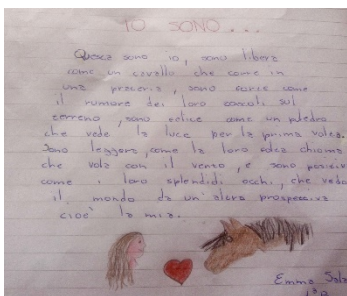 IO SONO...
Questa sono io, sono libera
come un cavallo che corre in
una prateria, sono forte come
il rumore dei loro zoccoli sul
terreno, sono felice come un puledro
che vede la luce per la prima volta.
Sono leggera come la loro folta chioma
che vola con il vento, e sono positiva
come i loro splendidi occhi, che vedo
il mondo da un'altra prospettiva
cioè la mia.
Emma